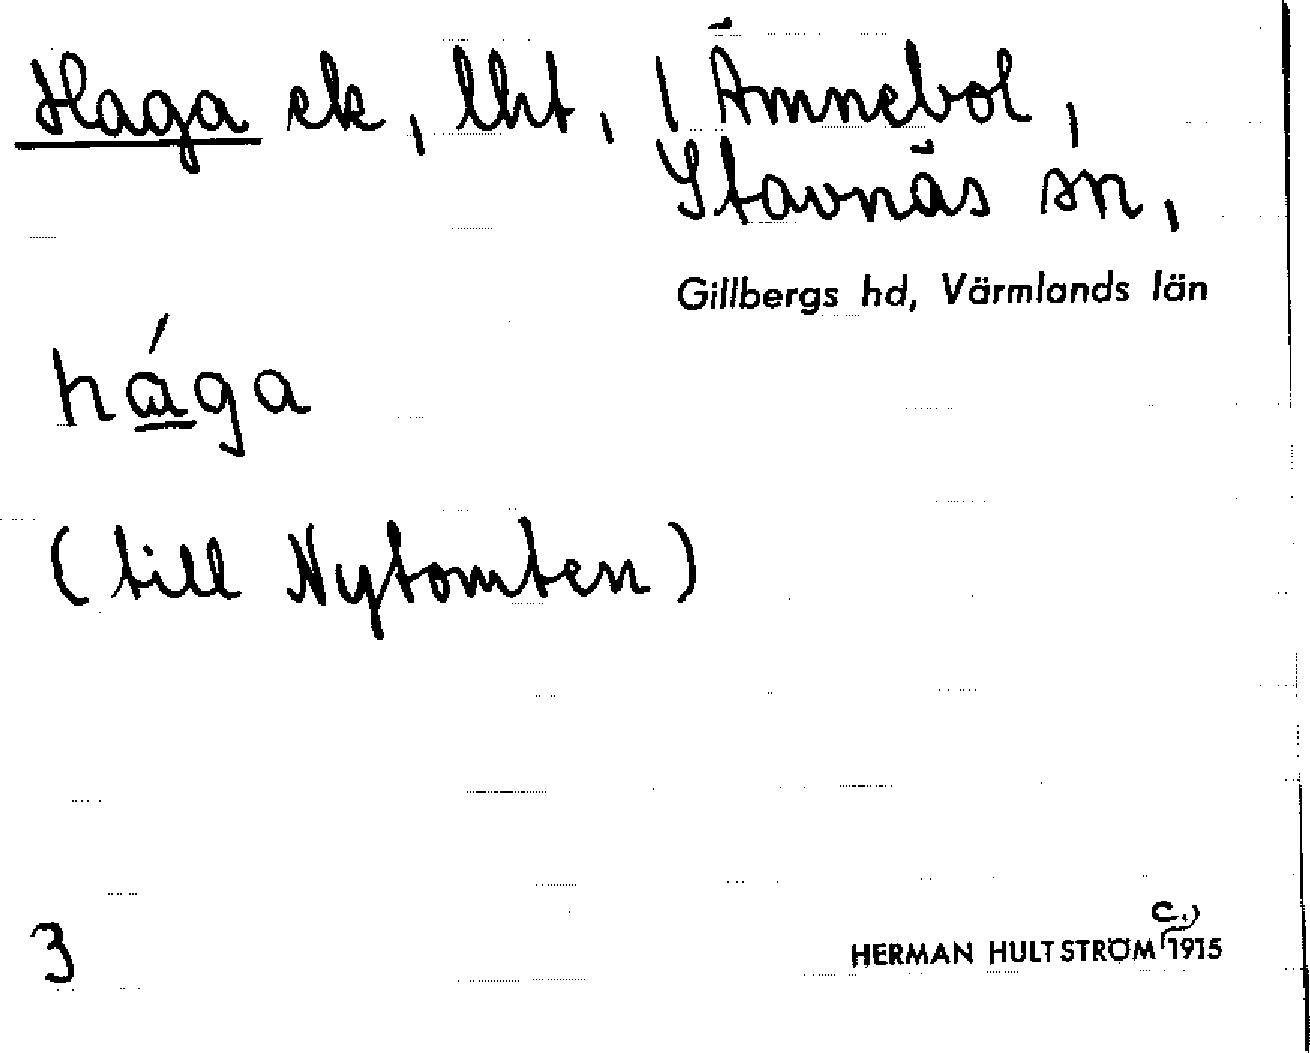 Haga ek, lht, i Ämnebol,
Stavnäs sn,
Gillbergs hd, Värmlands län
hága
(till Nytomten)
3
HERMAN HULTSTRÖM c. 1915